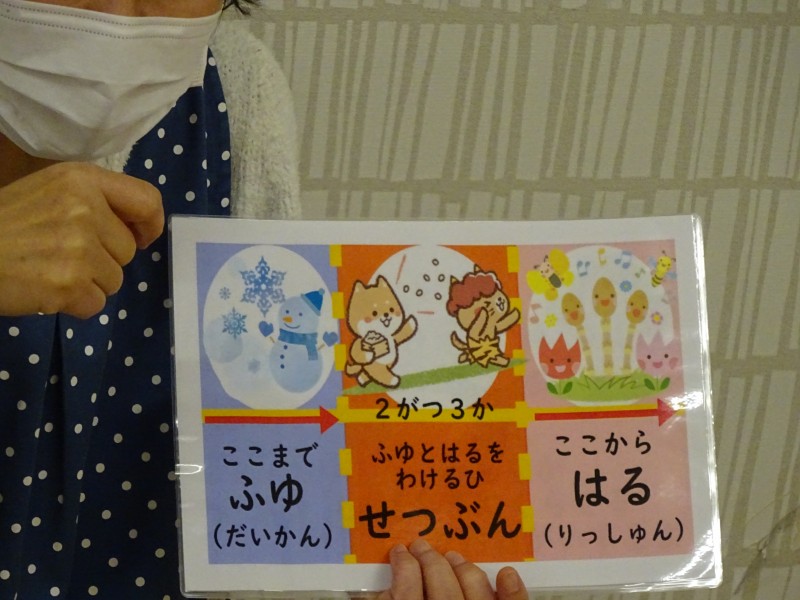 2がつ3か
ここまで
ふゆ
(だいかん)
ふゆとはるを
わけるひ
せつぶん
ここから
はる
(りっしゅん)